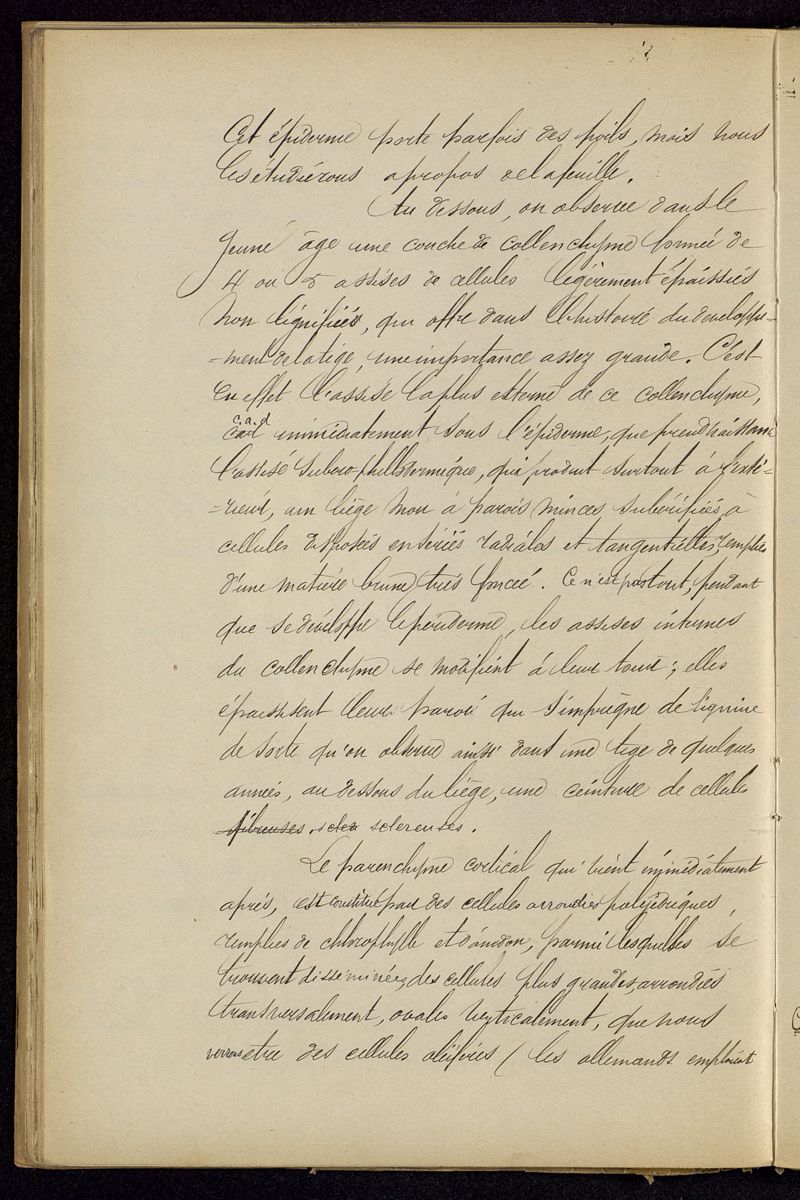 Cet épiderme porte parfois des poils, mais nous
les étudierons à propos de la feuille.
Au dessous, on observe dans le
jeune âge une couche de collenchyme formée de
4 ou 5 assises de cellules légèrement épaissies
non lignifiées, qui offre dans l'histoire du développe-
-ment de la tige, une importance assez grande. C'est
en effet l'assise la plus externe de ce collenchyme,
c.a.d immédiatement sous l'épiderme, que prend naissance
l'assise subero-phellodermique, qui produit surtout à l'exté-
-rieur, un liège mou à parois minces subérifiées à
cellules disposées en séries radiales et tangentielles, remplies
d'une matière brune très foncée. Ce n'est pas tout, pendant
que se développe le périderme, les assises internes
du collenchyme se modifient à leur tour ; elles
épaississent leur paroi qui s'imprègne de lignine
de sorte qu'on observe ainsi dans une tige de quelques
années, au dessous du liège, une ceinture de cellules
fibreuses scler sclereuses.
Le parenchyme cortical qui vient immédiatement
après, est constitué par des cellules arrondies polyédriques,
remplies de chlorophylle et d'amidon, parmi lesquelles se
trouvent disséminées, des cellules plus grandes, arrondies
transversalement, ovales verticalement, que nous
verrons être des cellules oléifères (les allemands emploient